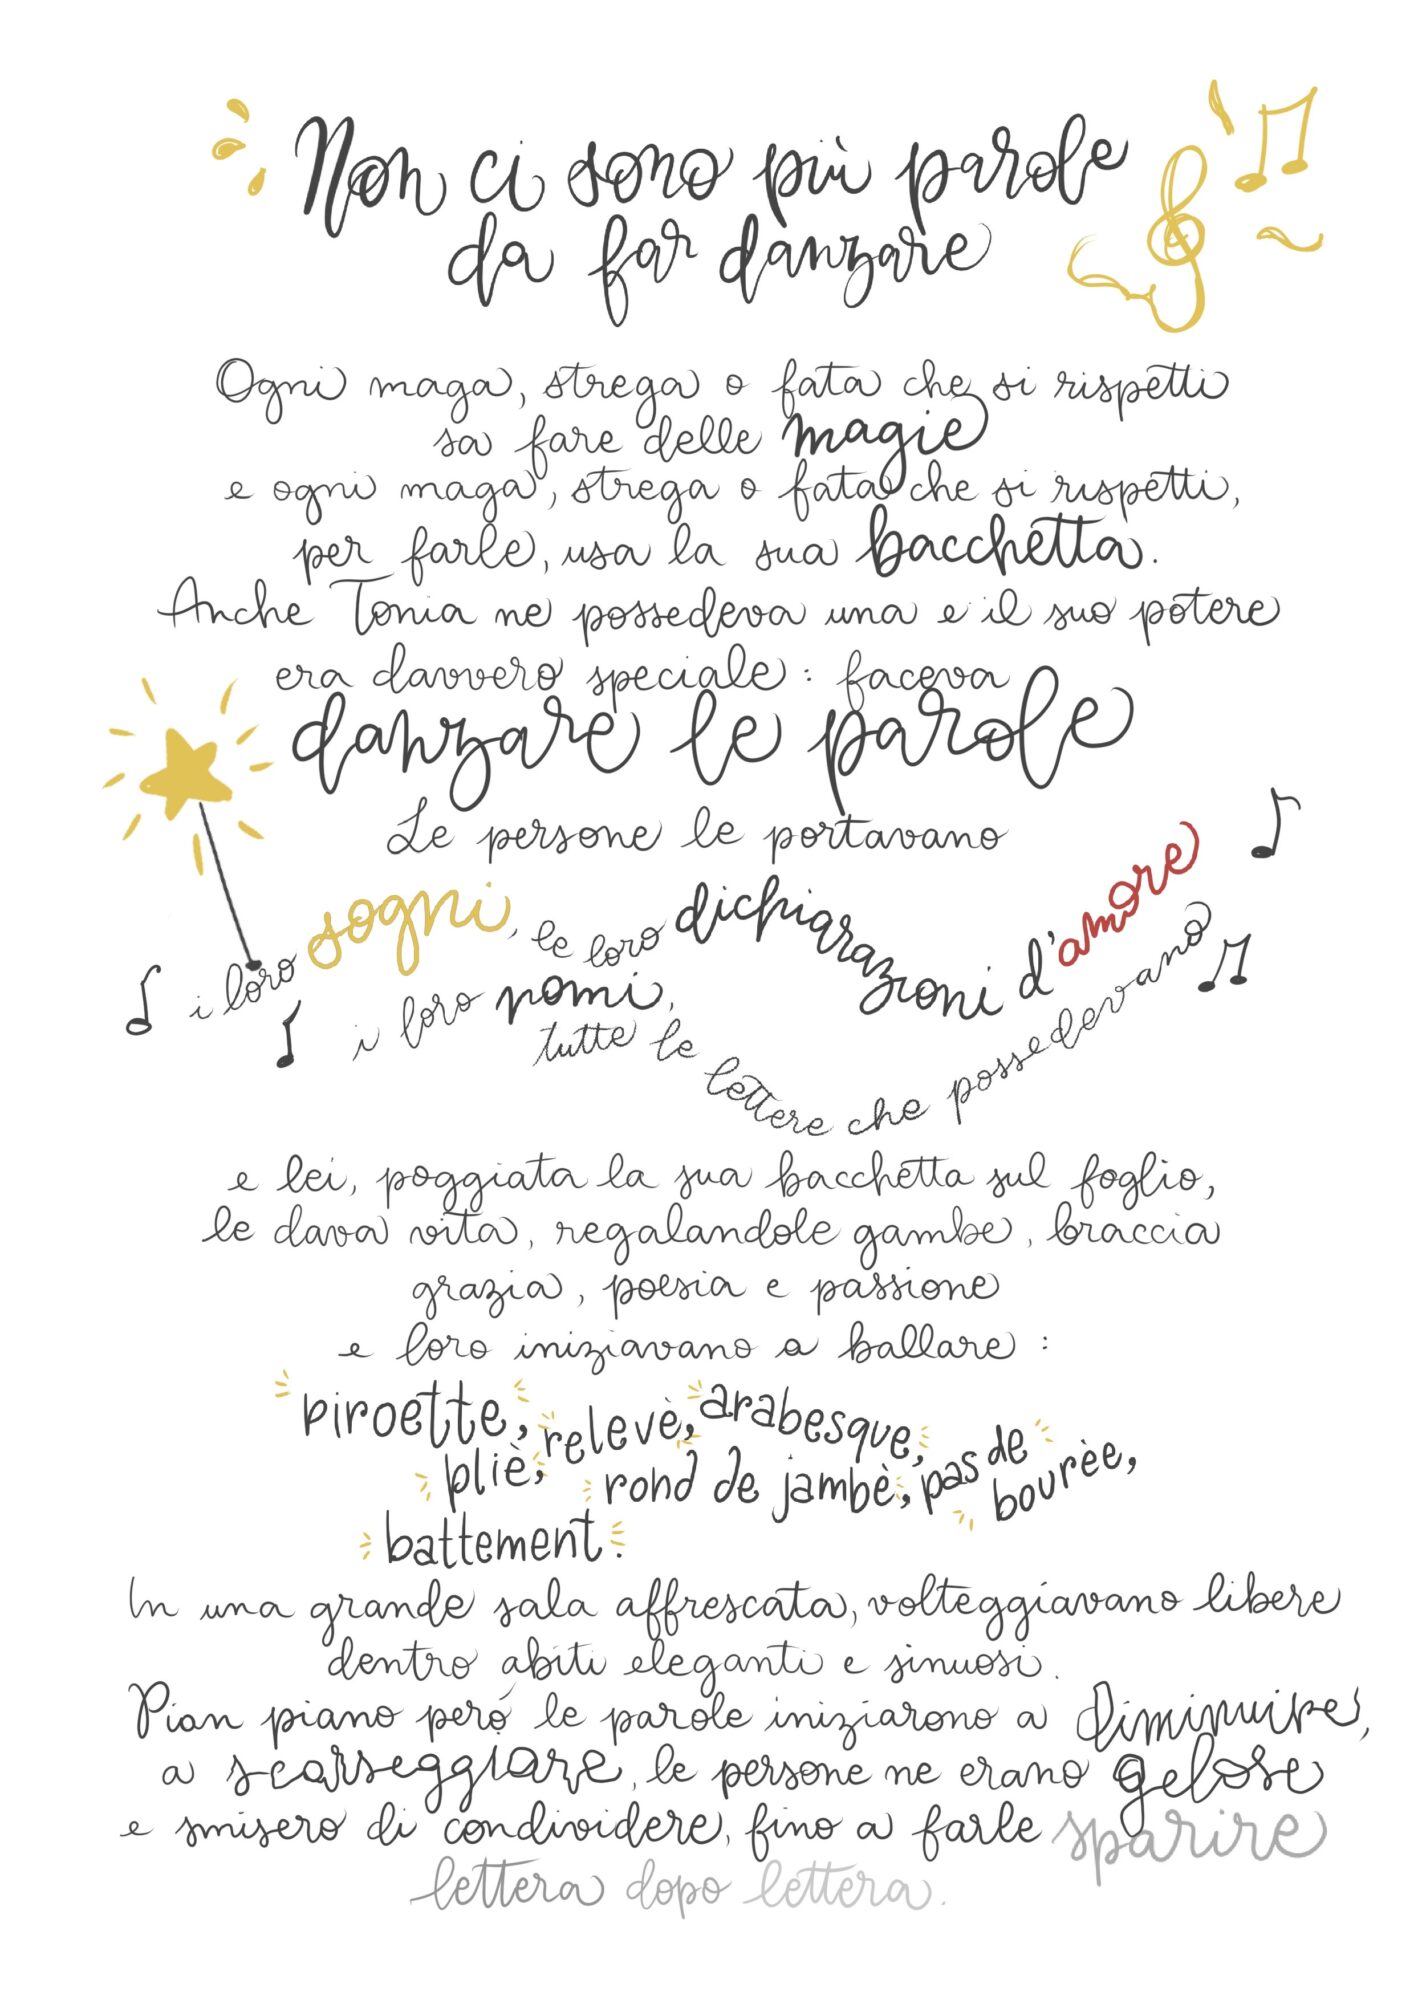 Non ci sono più parole
da far danzare
Ogni maga, strega o fata che si rispetti
sa fare delle magie
e ogni maga, strega o fata che si rispetti,
per farle, usa la sua bacchetta.
Anche Tonia ne possedeva una e il suo potere
era davvero speciale: faceva
danzare le parole
Le persone le portavano
i loro sogni, le loro dichiarazioni d'amore
i loro nomi,
tutte le lettere che possedevano
e lei, poggiata la sua bacchetta sul foglio,
le dava vita, regalandole gambe, braccia
grazia, poesia e passione
e loro iniziavano a ballare:
piroette, relevè, arabesque,
pliè, rond de jambè, pas de bourèe,
battement.
In una grande sala affrescata, volteggiavano libere
dentro abiti eleganti e sinuosi.
Pian piano però le parole iniziarono a diminuire,
a scarseggiare, le persone ne erano gelose
e smisero di condividere, fino a farle sparire
lettera dopo lettera.